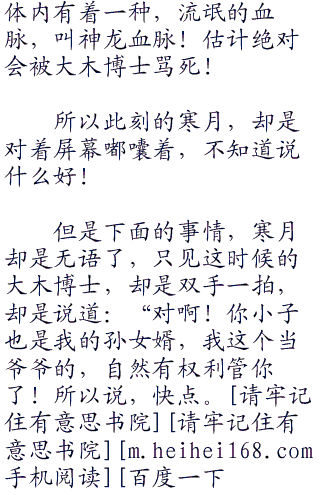 体内有着一种，流氓的血
脉，叫神龙血脉！估计绝对
会被大木博士骂死！
所以此刻的寒月，却是
对着屏幕嘟囔着，不知道说
什么好！
但是下面的事情，寒月
却是无语了，只见这时候的
大木博士，却是双手一拍，
却是说道：“对啊！你小子
也是我的孙女婿，我这个当
爷爷的，自然有权利管你
了！所以说，快点。[请牢记
住有意思书院][请牢记住有
意思书院][m.heihei168.com
手机阅读][百度一下